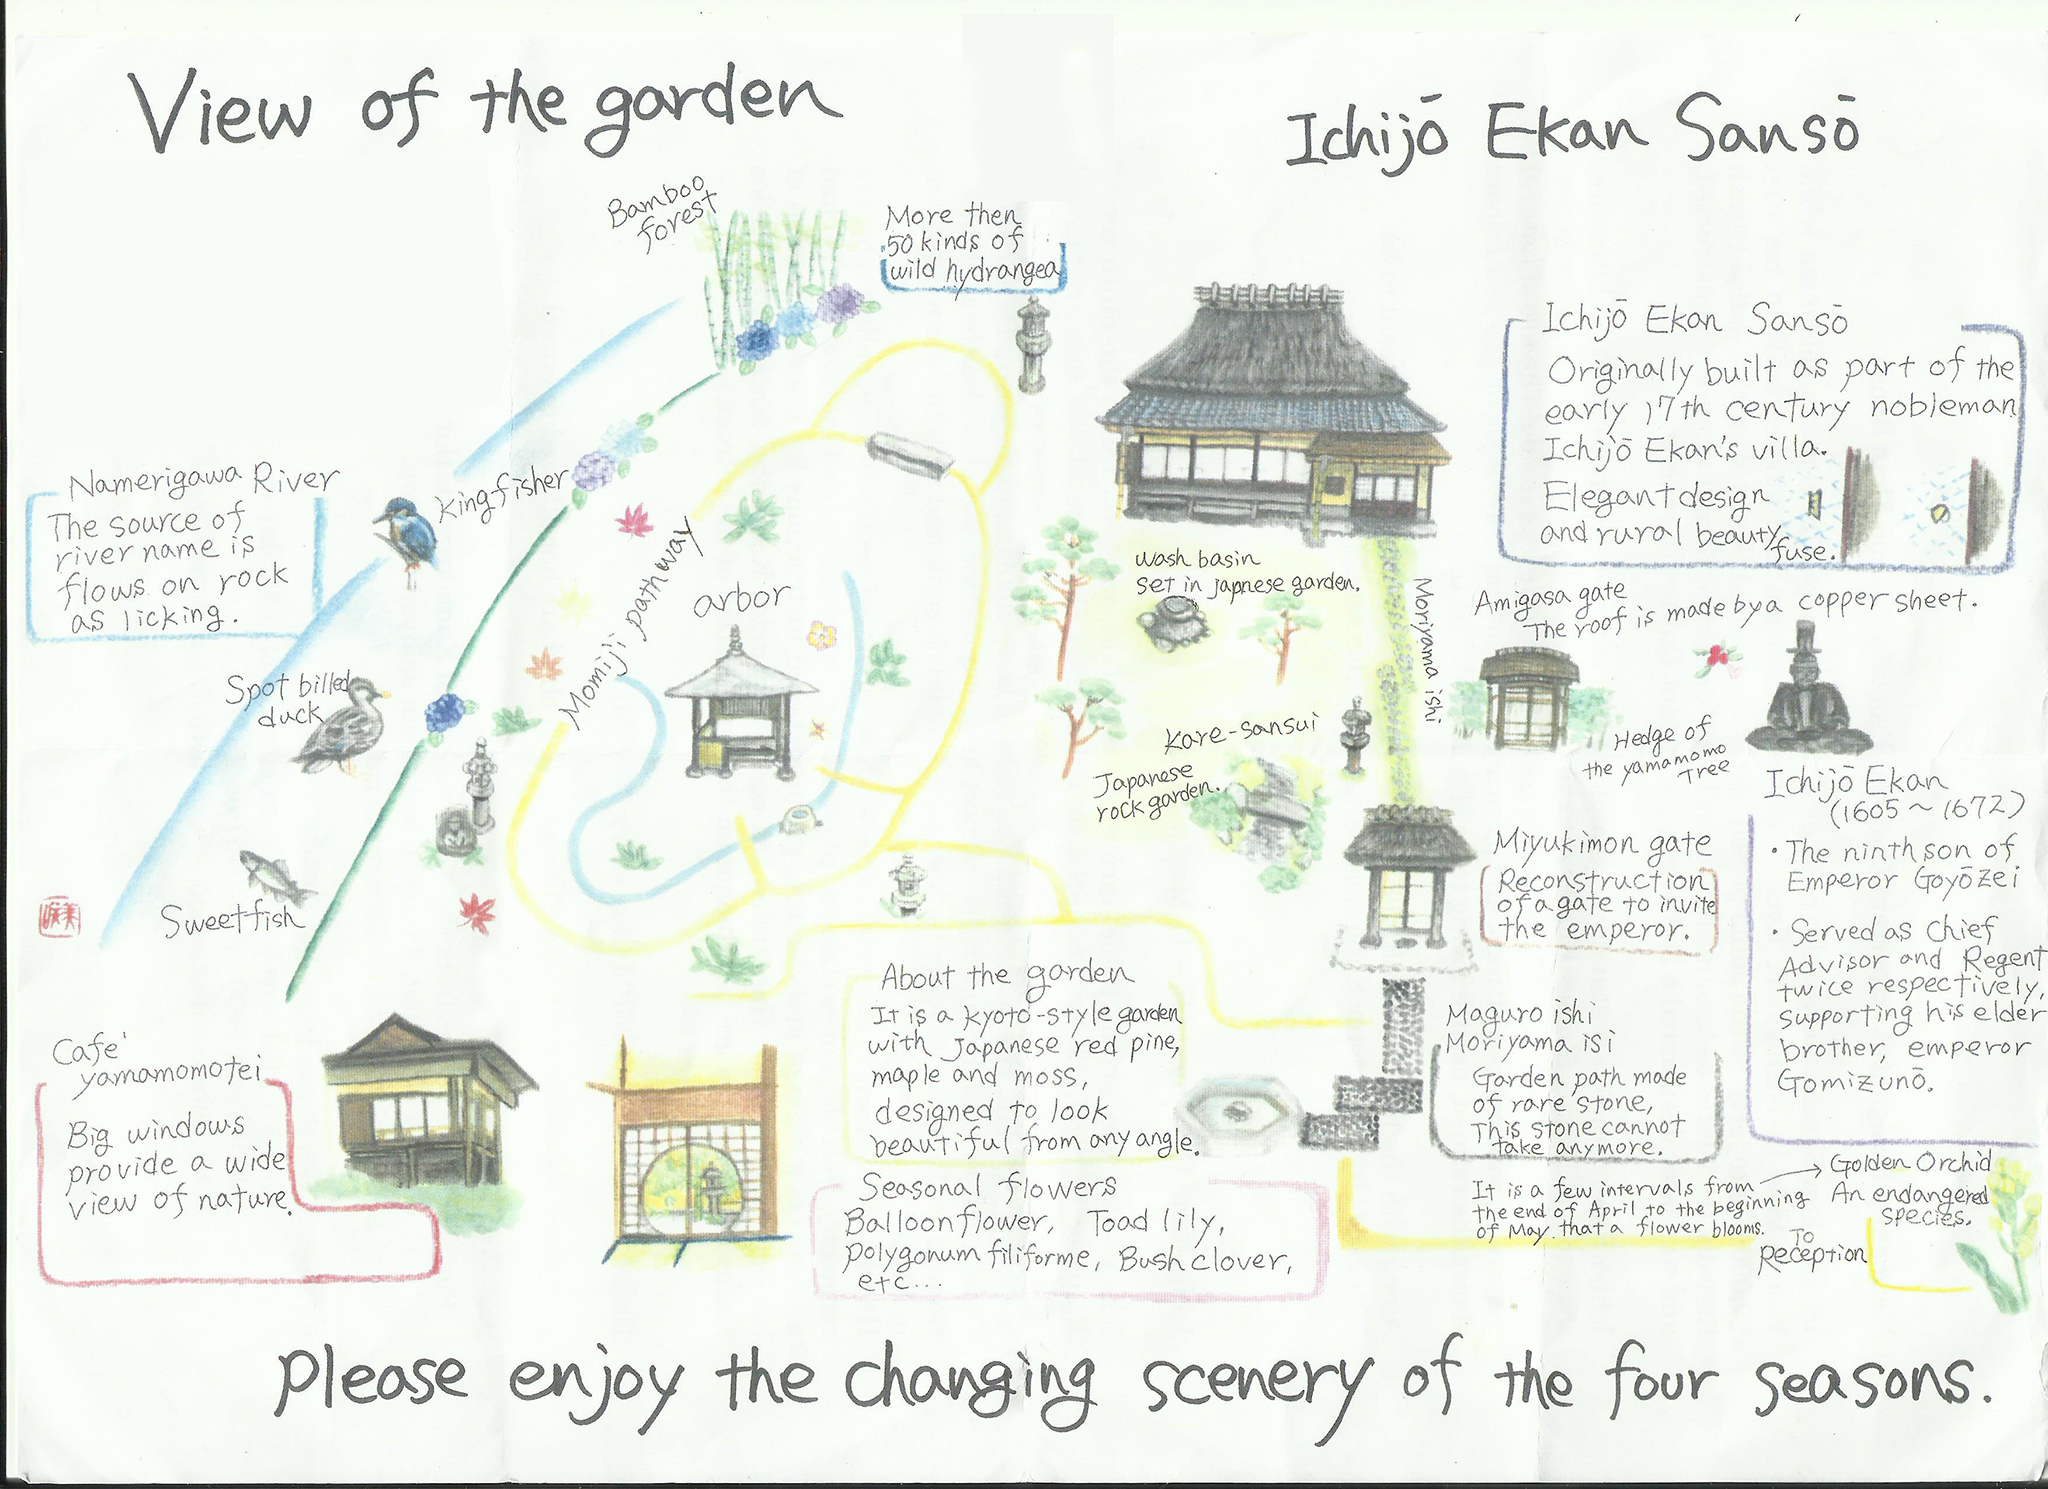 View of the garden
Ichijō Ekan Sansō
Bamboo
forest
More then
50 kinds of
wild hydrangea
Ichijō Ekan Sansō
Originally built as part of the
early 17th century nobleman
Ichijō Ekan's villa.
Elegant design
and rural beauty
fuse.
Namerigawa River
The source of
river name is
flows on rock
as licking.
kingfisher
Momiji pathway
arbor
Spot billed
duck
Sweetfish
wash basin
set in japnese garden.
Moriyama ishi
Amigasa gate
The roof is made by a copper sheet.
Hedge of
the yamamomo
Tree
kare-sansui
Japanese
rock garden.
Ichijō Ekan
(1605~1672)
・The ninth son of
Emperor Goyōzei
・Served as Chief
Advisor and Regent
twice respectively,
supporting his elder
brother, emperor
Gomizunō.
Miyukimon gate
Reconstruction
of a gate to invite
the emperor.
About the garden
It is a kyoto-style garden
with Japanese red pine,
maple and moss,
designed to look
beautiful from any angle.
Maguro ishi
Moriyama isi
Garden path made
of rare stone,
This stone cannot
take anymore.
Café
yamamomotei
Big windows
provide a wide
view of nature.
Seasonal flowers
Balloonflower, Toad lily,
polygonum filiforme, Bush clover,
etc...
It is a few intervals from → Golden Orchid
the end of April to the beginning
of May that a flower blooms.
An endangered
species.
To
Reception
Please enjoy the changing scenery of the four seasons.